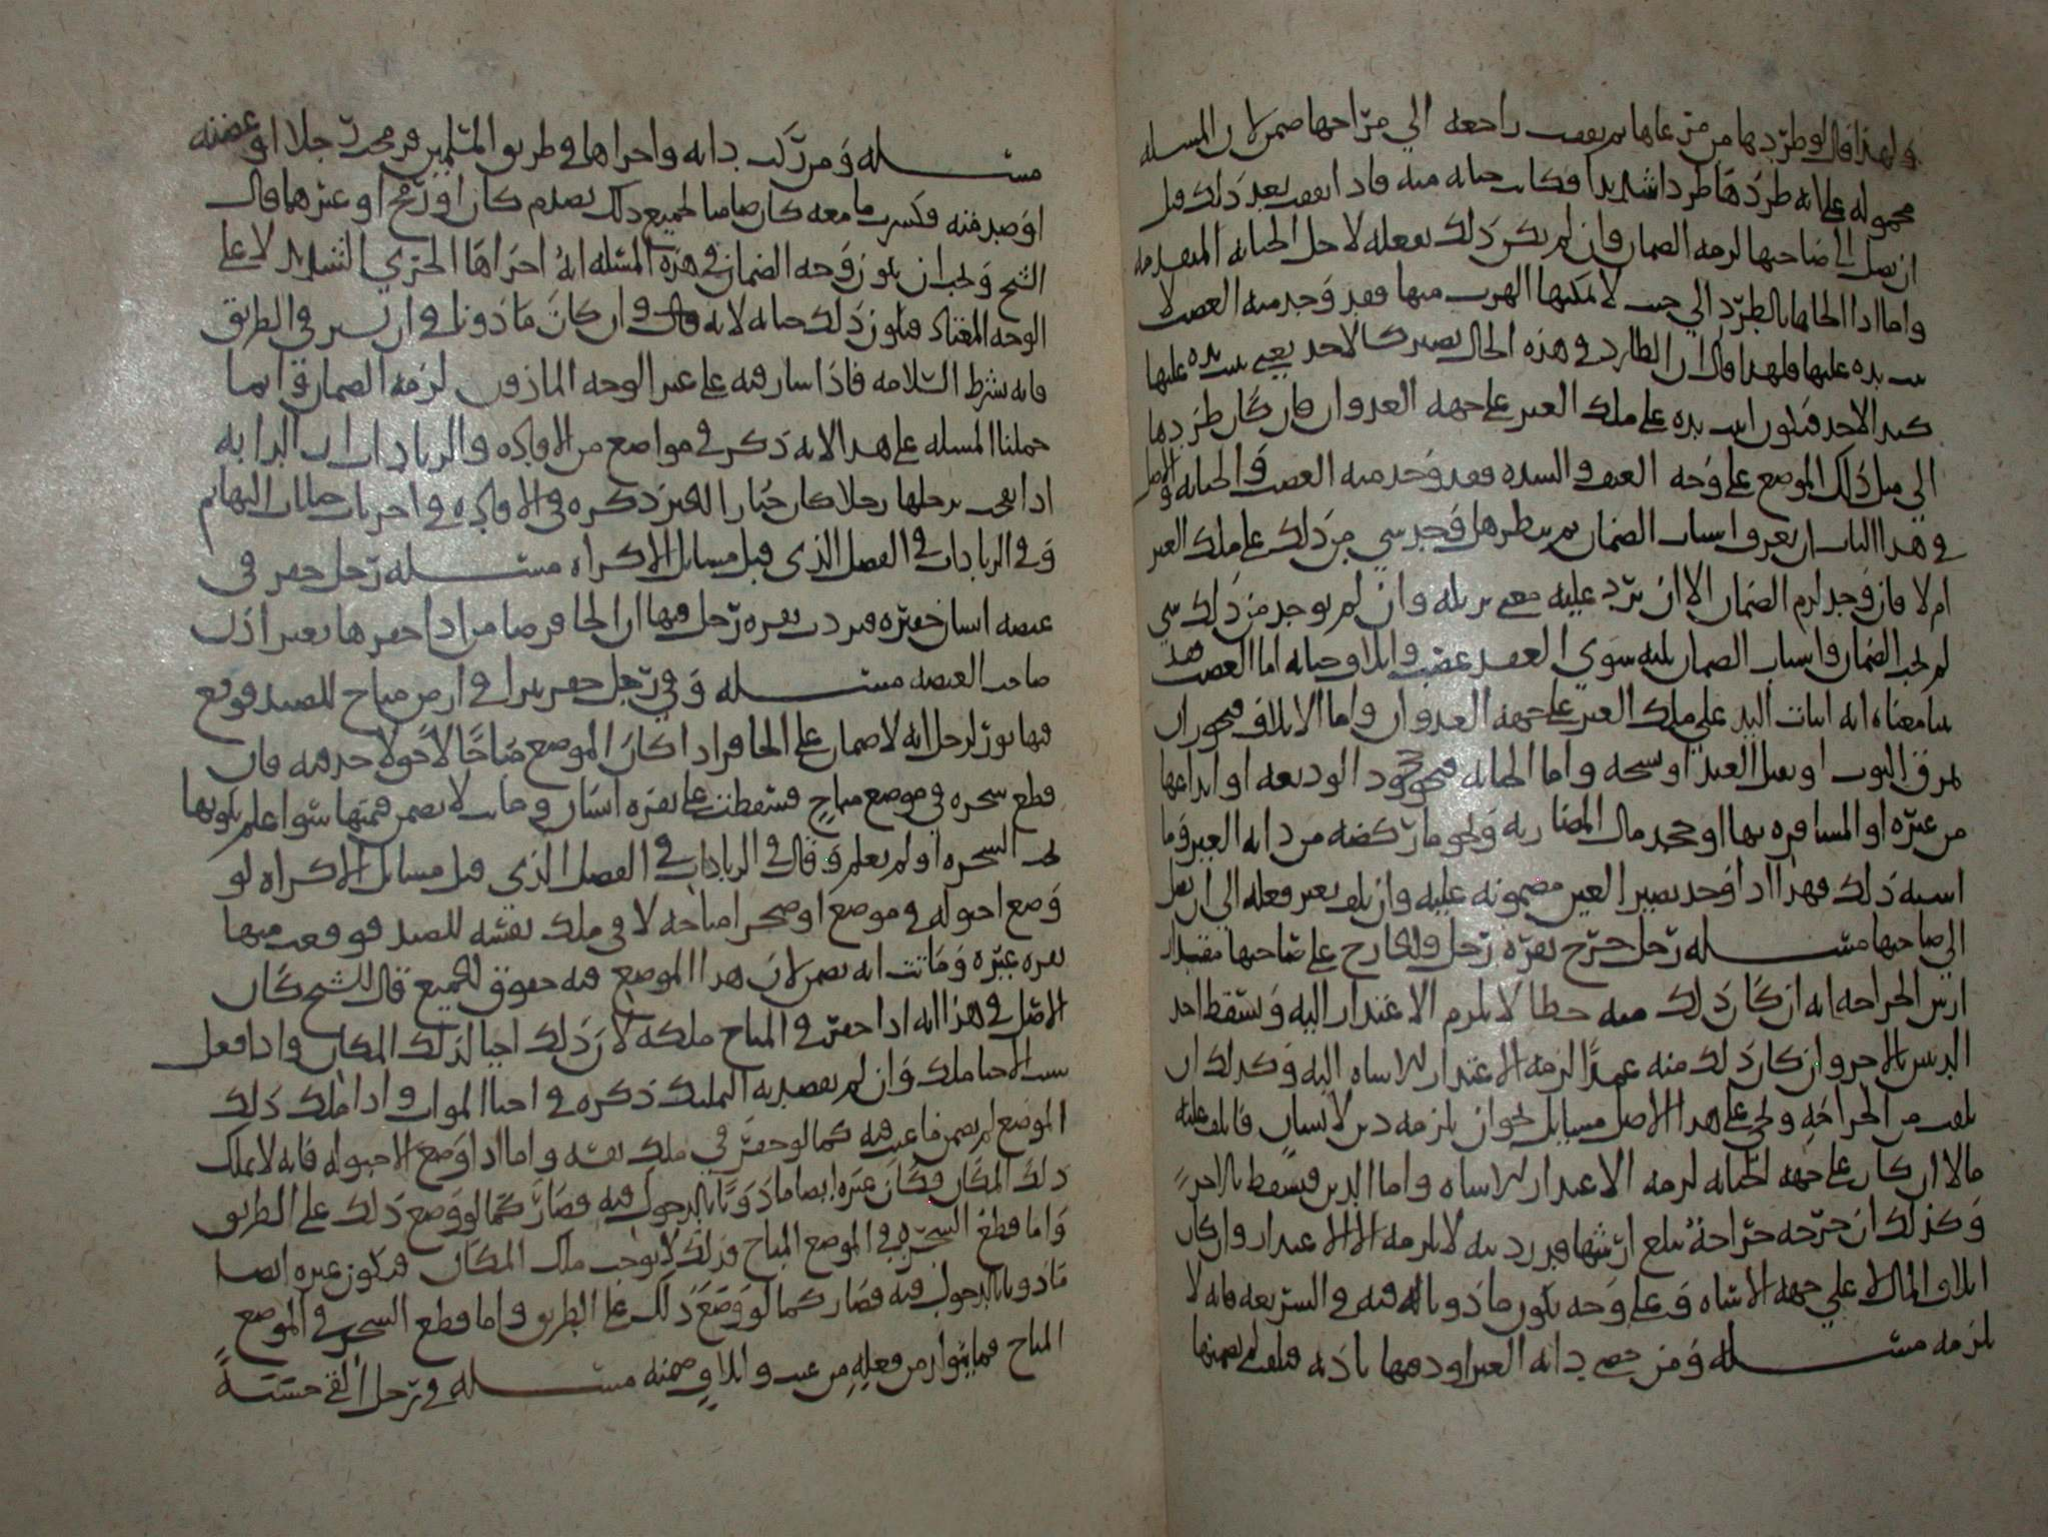 ولهذا قال لو طردها من مرعاها ثم نفقت راجعة الي مراحها ضمن لان المسلة
محمولة على انه طردها طردا شديدا فكانت جناية منه فاذا نفقت بعد ذلك قبل
ان يصل الى صاحبها لزمه الضمان وان لم يكن ذلك بفعله لاجل الجناية المتقدمة
واما اذا الجاها بالطرد الي حيث لا يمكنها الهرب منها فقد وجد منه الغصب لا
يده عليها فلهذا قال ان الطارد في هذه الحال يصير كالاخذ يعني يده عليها
كيد الاخذ فيكون اثبت يده على ملك الغير على جهة العدوان فان كان طردها
الى مثل ذلك الموضع على وجه العنف والشدة فقد وجد منه الغصب والجناية والاصل
في هذا الباب ان يعرف اسباب الضمان ثم ينظر هل وجد شي من ذلك على ملك الغير
ام لا فان وجد لزم الضمان الا ان يرد عليه معنى يزيله وان لم يوجد من ذلك شي
لم يجب الضمان واسباب الضمان ثلثة سوى العقد غصب واتلاف وجناية اما الغصب
معناه انه اثبات اليد على ملك الغير على جهة العدوان واما الاتلاف فنحو ان
يمزق الثوب او يقتل العبد او يشجه واما الجناية فنحو جحود الوديعة او ايداعها
من غيره او المسافرة بها او جحد مال المضاربة ونحو ما ركضه من دابة الغير وما
اشبه ذلك فهذا اذا وجد يصير العين مضمونة عليه وان تلف بغير فعله الى ان يصل
الى صاحبها مسلة رجل جرح بقرة رجل والجارح على صاحبها مقدار
ارش الجراحة انه ان كان ذلك منه خطا لا يلزم الاعتذار اليه ويسقط احد
الدينين بالاخر وان كان ذلك منه عمدا لزمه الاعتذار للاساة اليه وكذلك ان
تلفت من الجراحة وعلى هذا الاصل مسايل نحو ان يلزمه دين لانسان فاتلف عليه
مالا ان كان على جهة الجناية لزمه الاعتذار للاساة واما الدين فيسقط بالاخر
وكذلك ان جرحه جراحة تبلغ ارشها قدر دينه لا يلزمه الا الاعتذار وان كان
اتلاف المال لا على جهة الاساة وعلى وجه يكون ماذونا له فيه في الشريعة فانه لا
يلزمه مسلة ومن خصى دابة الغير او دفنها باذنه فتلفت لم يضمنها
مسلة ومن ركب دابة واجراها في طريق المسلمين فرمحت رجلا او عضته
او صدمته فكسرت ما معه كان ضامنا لجميع ذلك بصدم كان او رمح او غيرهما قال
الشيخ ويجب ان يكون وجه الضمان في هذه المسلة انه اجراها الجري الشديد لا على
الوجه المعتاد فيكون ذلك جناية لانه قال وان كان ماذونا وان يسير في الطريق
فانه بشرط السلامة فاذا سار فيه على غير الوجه الماذون لزمه الضمان وانما
حملنا المسلة على هذا لانه ذكر في مواضع من الافادة والزيادات ان الدابة
اذا نفحت برجلها رجلا كان جبارا ذكره في الافادة في اخر باب جنايات البهايم
وفي الزيادات في الفصل الذي قبل مسايل الاكراه مسلة رجل حفر في
غيضة انسان حفيرة فتردت بقرة رجل فيها ان الحافر ضامن اذا حفرها بغير اذن
صاحب الغيضة مسلة وفي رجل حفر بيرا في ارض مباح للصيد فوقع
فيها ثور لرجل انه لا ضمان على الحافر اذا كان الموضع مباحا لا حق لاحد فيه فان
قطع شجرة في موضع مباح فسقطت على بقرة انسان وماتت لا يضمن قيمتها سوا علم بكونها
تحت الشجرة او لم يعلم وقال في الزيادات في الفصل الذي قبل مسايل الاكراه لو
وضع احبولة في موضع او صحرا مباحة لا في ملك نفسه للصيد فوقعت فيها
بقرة غيره وماتت انه يضمن لان هذا الموضع فيه حقوق للجميع قال الشيخ كان
الاصل في هذا انه اذا حفر في المباح ملكه لان ذلك احيا لذلك المكان واذا فعل
سبب الاحيا ملك وان لم يقصد به التمليك ذكره في احيا الموات واذا ملك ذلك
الموضع لم يضمن ما عنت فيه كما لو حفر في ملك نفسه واما اذا وضع الاحبولة فانه لا يملك
ذلك المكان فكان غيره ايضا ماذونا بالدخول فيه فصار كما لو وضع ذلك على الطريق
واما قطع الشجرة في الموضع المباح فذلك لا يوجب ملك المكان فيكون غيره ايضا
ماذونا بالدخول فيه فصار كما لو وضع ذلك على الطريق واما قطع الشجر في الموضع
المباح فما يتولد من فعله من عنت واتلاف ضمنه مسلة في رجل القى خشبة